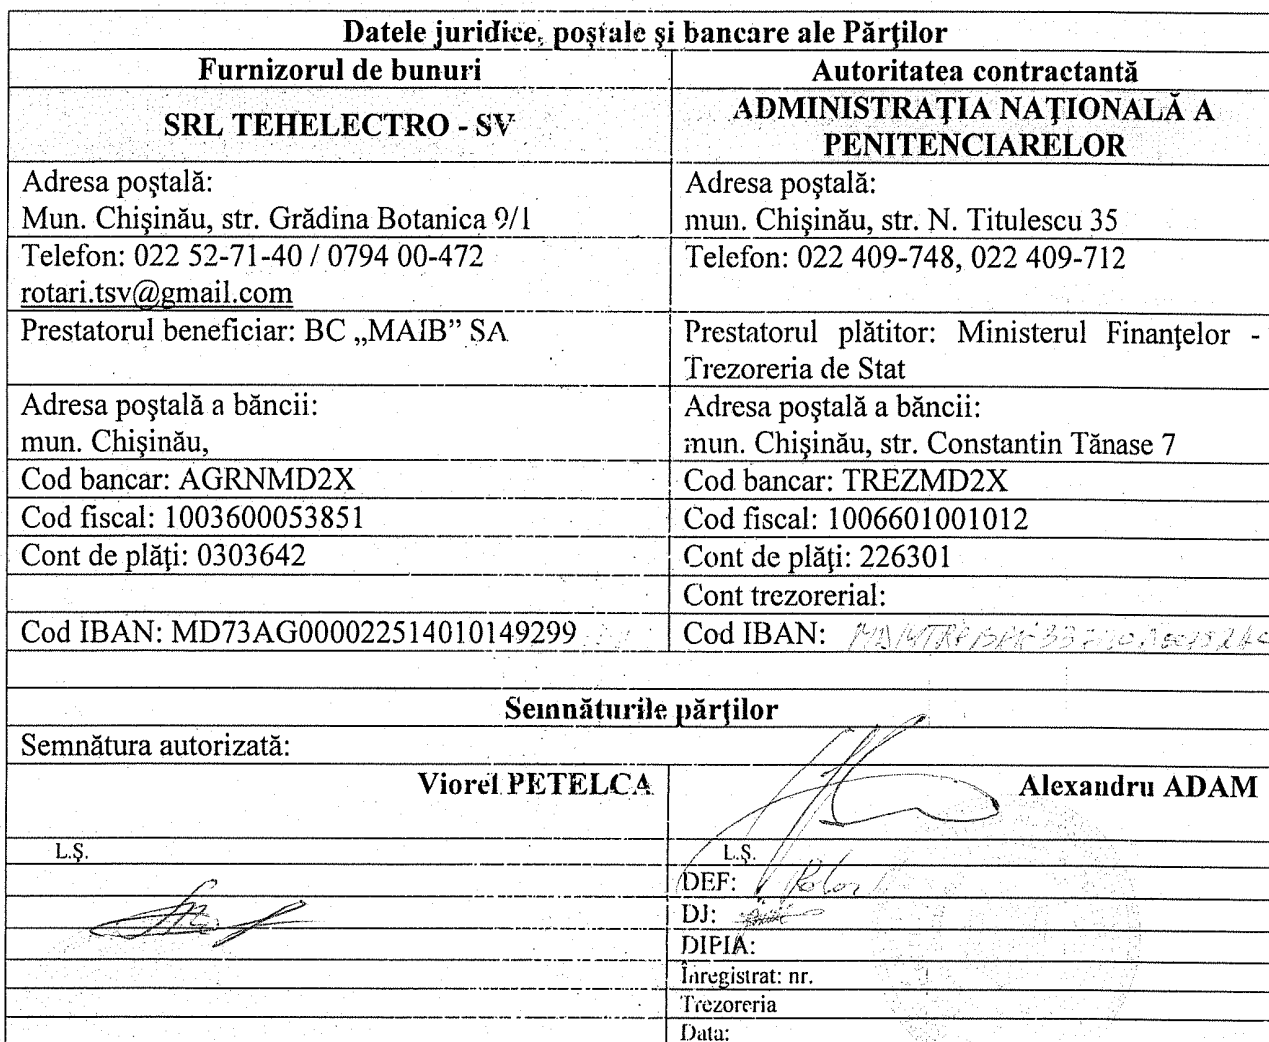 Datele juridice, poştale şi bancare ale Părţilor
Furnizorul de bunuri
Autoritatea contractantă
SRL TEHELECTRO - SV
ADMINISTRAŢIA NAŢIONALĂ A
PENITENCIARELOR
Adresa poştală:
Mun. Chişinău, str. Grădina Botanica 9/1
Adresa poştală:
mun. Chişinău, str. N. Titulescu 35
Telefon: 022 52-71-40 / 0794 00-472
rotari.tsv@gmail.com
Telefon: 022 409-748, 022 409-712
Prestatorul beneficiar: BC „MAIB” SA
Prestatorul plătitor: Ministerul Finanţelor -
Trezoreria de Stat
Adresa poştală a băncii:
mun. Chişinău,
Adresa poştală a băncii:
mun. Chişinău, str. Constantin Tănase 7
Cod bancar: AGRNMD2X
Cod bancar: TREZMD2X
Cod fiscal: 1003600053851
Cod fiscal: 1006601001012
Cont de plăţi: 0303642
Cont de plăţi: 226301
Cont trezorerial:
Cod IBAN: MD73AG000022514010149299
Cod IBAN:
Semnăturile părţilor
Semnătura autorizată:
Viorel PETELCA
Alexandru ADAM
L.Ş.
L.Ş.
DEF:
DJ:
DIPIA:
Înregistrat: nr.
Trezoreria
Data: